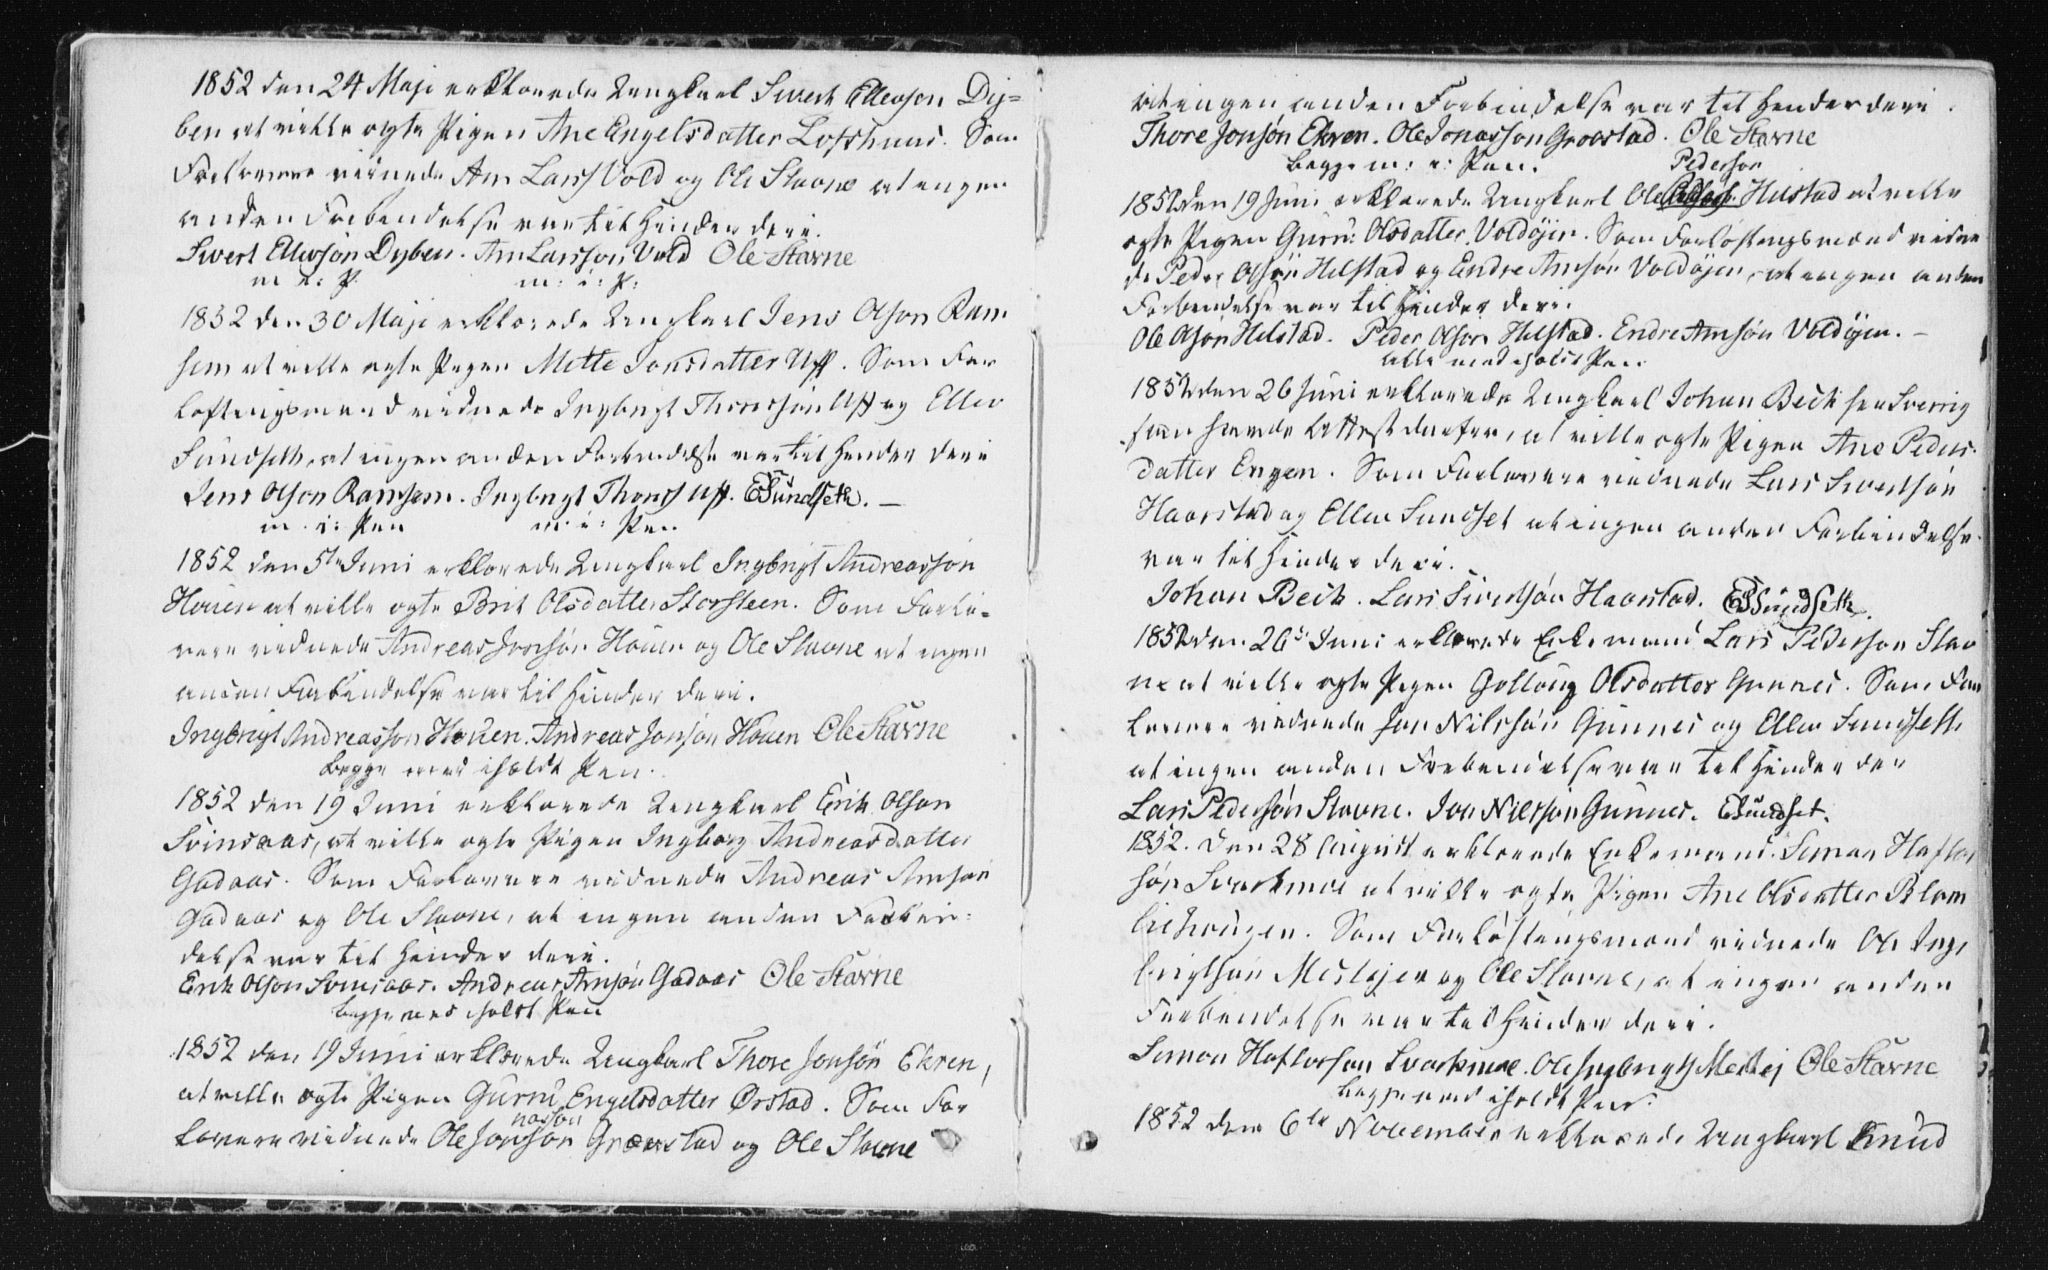 1852 den 24 Maji erklærede Ungkarl Sivert Ellevsøn Dy=
ben at ville ægte Pigen Ane Engelsdatter Lofshuus. Som
Forlovere vidnede Arn Lars Vold og Ole Stavne at ingen
anden Forbindelse var til Hinder deri.
Sivert Ellevsøn Dyben. Arn Larsson Vold Ole Stavne
m. i: P. m: i: P:
1852 den 30 Maji erklærede Ungkarl Jens Olson Ram
sem at ville ægte Pigen Mette Jonsdatter Uff. Som For
løftningsmænd vidnede Ingbrigt Thoresøn Uff og Ellev
Sundseth, at ingen anden Forbindelse var til Hinder deri
Jens Olson Ramsem. Ingbrigt Thors: Uff. ESundseth. —
m. i: Pen m: i: Pen
1852 den 5te Juni erklærede Ungkarl Ingbrigt Andreassøn
Houen at ville ægte Brit Olsdatter Storsteen. Som Forlo=
vere vidnede Andreas Jonsøn Houen og Ole Stavne at ingen
anden Forbindelse var til Hinder deri.
Ingbrigt Andreasson Houen. Andreas Jonsøn Houen Ole Stavne
begge med iholdt Pen.
1852 den 19 Juni erklærede Ungkarl Erik Olson
Svinsaas, at ville ægte Pigen Ingborg Andreasdatter
Gadaas. Som Forlovere vidnede Andreas Arnsøn
Gadaas og Ole Stavne, at ingen anden Forbin=
delse var til Hinder deri.
Erik Olson Svinsaas. Andreas Arnsøn Gadaas Ole Stavne
begge med iholdt Pen
1852 den 19 Juni erklærede Ungkarl Thore Jonsøn Ekren,
at ville ægte Pigen Gurru Engelsdatter Ørstad. Som For
nasson
lovere vidnede Ole Jonsøn Grævstad og Ole Stavne
at ingen anden Forbindelse var til Hinder deri.
Thore Jonsøn Ekren. Ole Jonasson Græstad. Ole Stavne
begge m: i: Pen.
Pederson
1852 den 19 Juni erklærede Ungkarl Ole Helstad at ville
ægte Pigen Gurru Olsdatter Voldøjen. Som Forløftningsmænd vidne
de Peder Olsøn Helstad og Endre Arnsøn Voldøjen, at ingen anden
Forbindelse var til Hinder deri.
Ole Olsøn Helstad. Peder Olson Helstad. Endre Arnsøn Voldøjen. —
alle med iholdt Pen
1852 den 26 Juni erklærede Ungkarl Johan Beck fra Sverrig
som havde Attest derfra, at ville ægte Pigen Ane Peders
datter Engen. Som Forlovere vidnede Lars Sivertsøn
Haarstad og Ellev Sundset at ingen anden Forbindelse
var til Hinder deri.
Johan Beck. Lars Sivertsøn Haarstad. ESundseth.
1852 den 26de Juni erklærede Enkemand Lars Pederson Stav
ne at ville ægte Pigen Golloug Olsdatter Gunnes. Som For
lovere vidnede Jon Nilssøn Gunnes og Ellev Sundseth
at ingen anden Forbindelse var til Hinder der
Lars Pedersøn Stavne. Jon Nilssøn Gunnes. ESundset.
1852. Den 28 August erklærede Enkemand Simon Haftor
søn Svarkmoe at ville ægte Pigen Ane Olsdatter Blom
liehougen. Som Forløftningsmænd vidnede Ole Inge
brigtsøn Mesløjen og Ole Stavne, at ingen anden
Forbindelse var til Hinder deri.
Simon Haftorson Svarkmoe. Ole Ingbrigts Ole Stavne
begge med iholdt Pen.
1852 den 6te November erklærede Ungkarl Knud